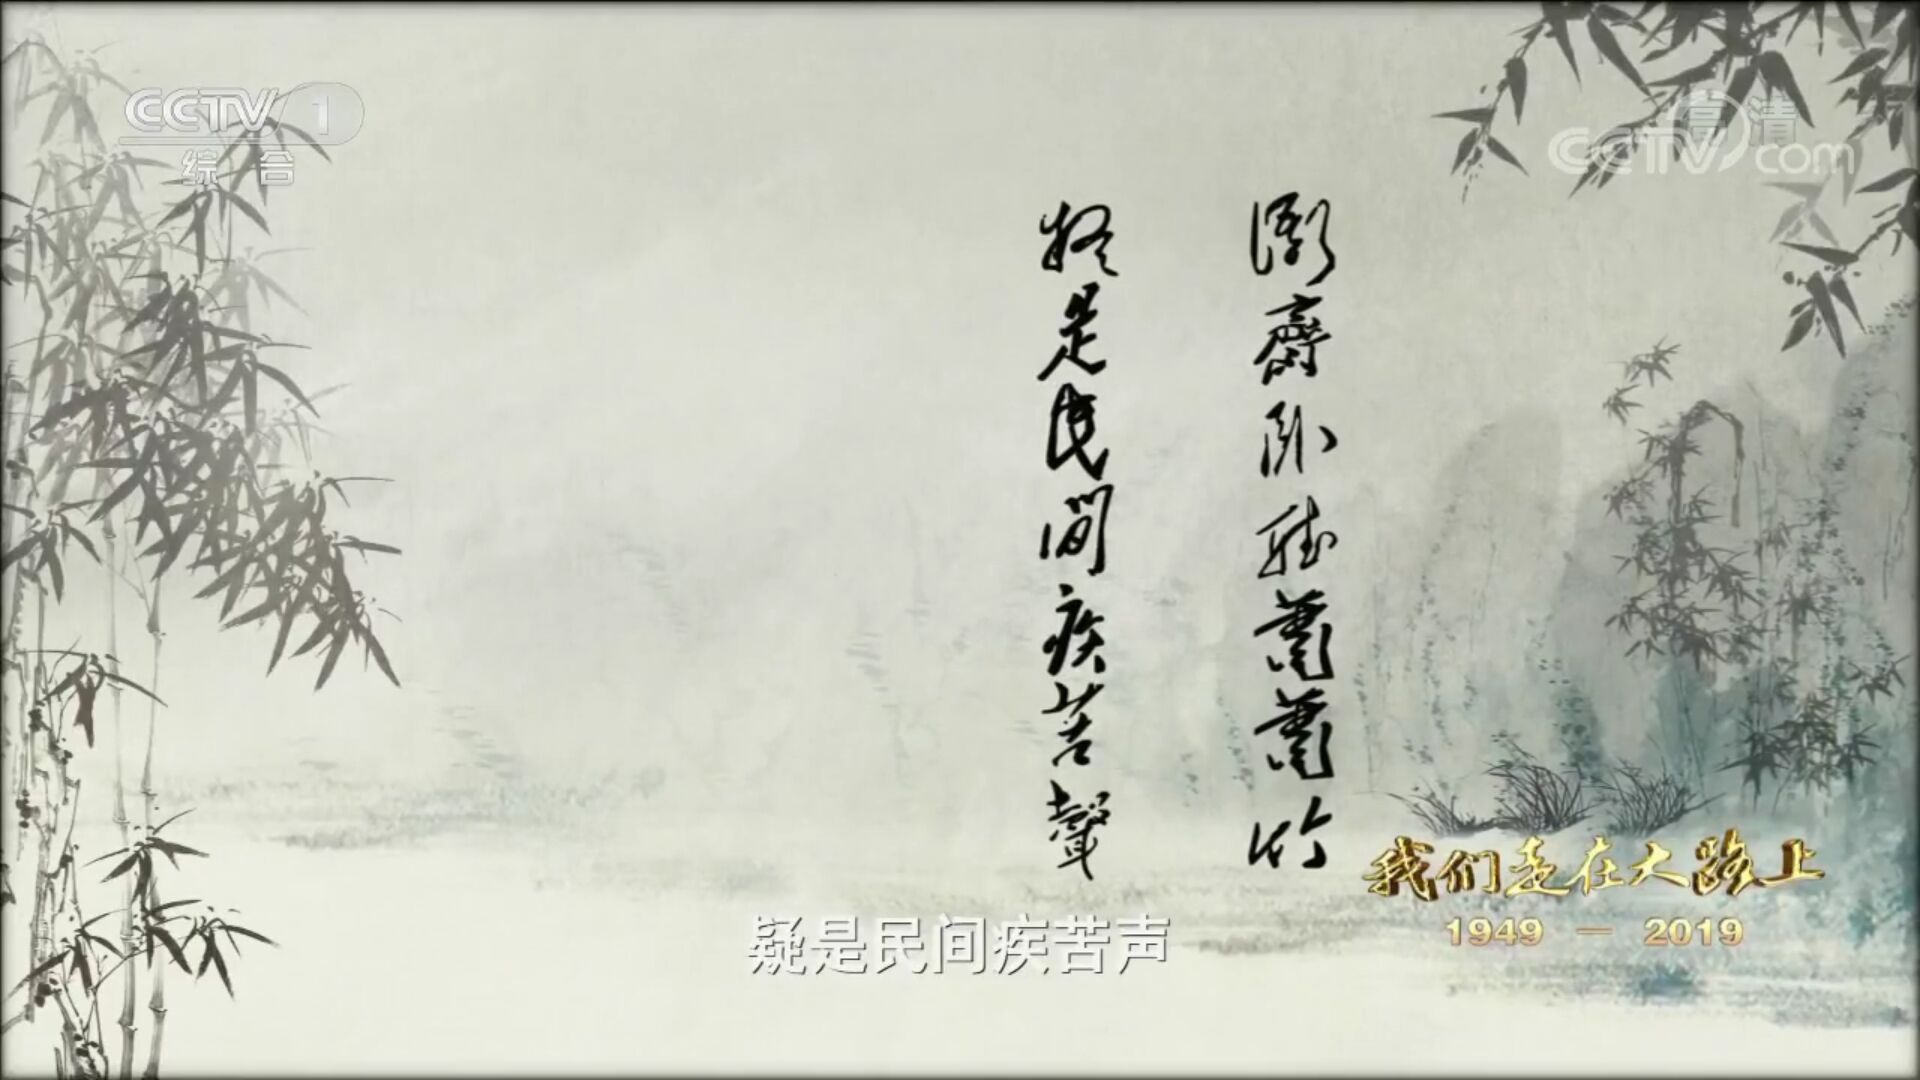 CCTV 1
综合
高清
CCTV.com
衙齋卧聽蕭蕭竹
疑是民間疾苦聲
我们走在大路上
1949 — 2019
疑是民间疾苦声